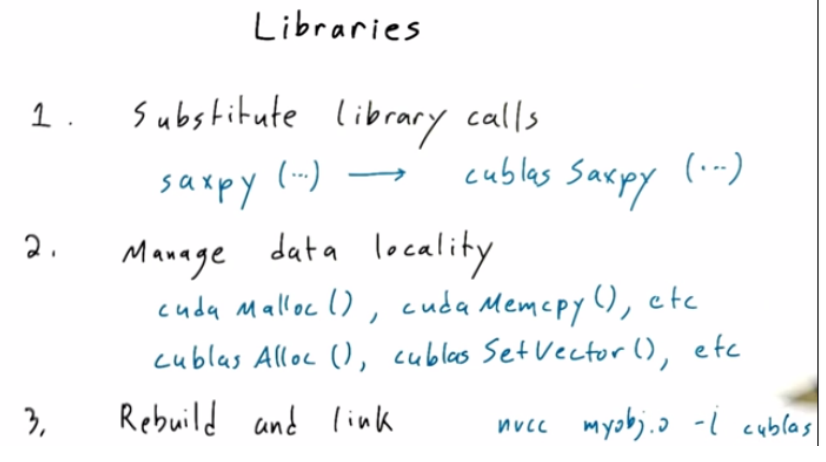 Libraries
1. Substitute library calls
saxpy (...) → cublas Saxpy (...)
2. Manage data locality
cuda Malloc (), cuda Memcpy (), etc
cublas Alloc (), cublas Set Vector (), etc
3, Rebuild and link nvcc myobj.o -l cublas